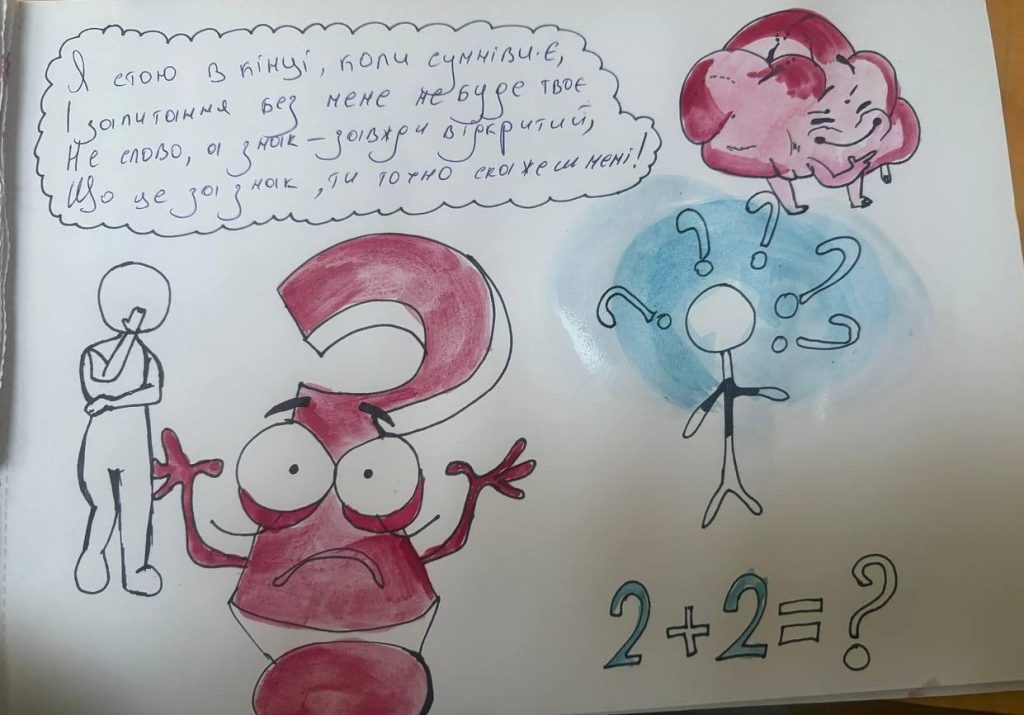 Я стою в кінці, коли сумніви є,
І запитання без мене не буде твоє
Не слово, а знак – завжди відкритий,
Що це за знак, ти точно скажеш мені!
? ? ? ? ?
?
2+2=?